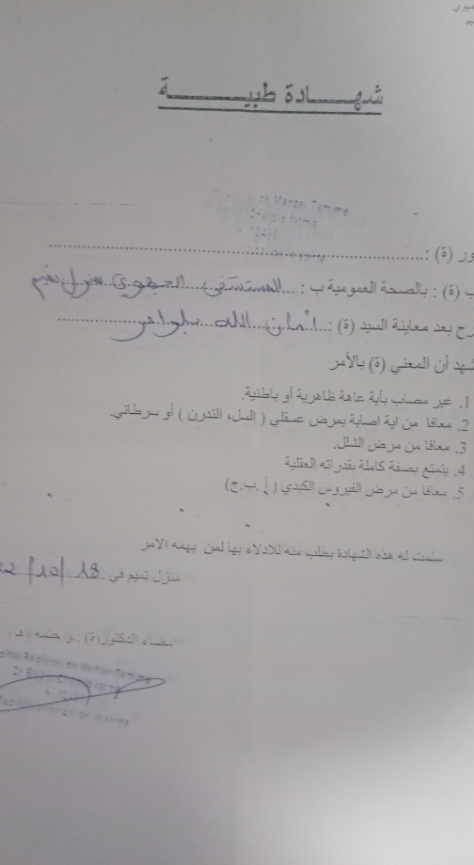 شهادة طبية
(ة) :
(ة) : بالصحة العمومية ب : المستشفى الجهوي منزل تميم
بعد معاينة السيد (ة) : أمان الله
أن المعني (ة) بالأمر
1. غير مصاب بأية عاهة ظاهرية أو باطنية.
2. معافا من اية اصابة بمرض عسقلي ( السل، التدرن ) أو سرطاني.
3. معافا من مرض الشلل.
4. يتمتع بصفة كاملة بقدراته العقلية
5. معافا من مرض الفيروس الكبدي ( أ، ب، ج)
سلمت له هذه الشهادة بطلب منه للادلاء بها لمن يهمه الامر
منزل تميم في 18/10/
امضاء الدكتور(ة) : و ختمه
Regional de Menzel Temime